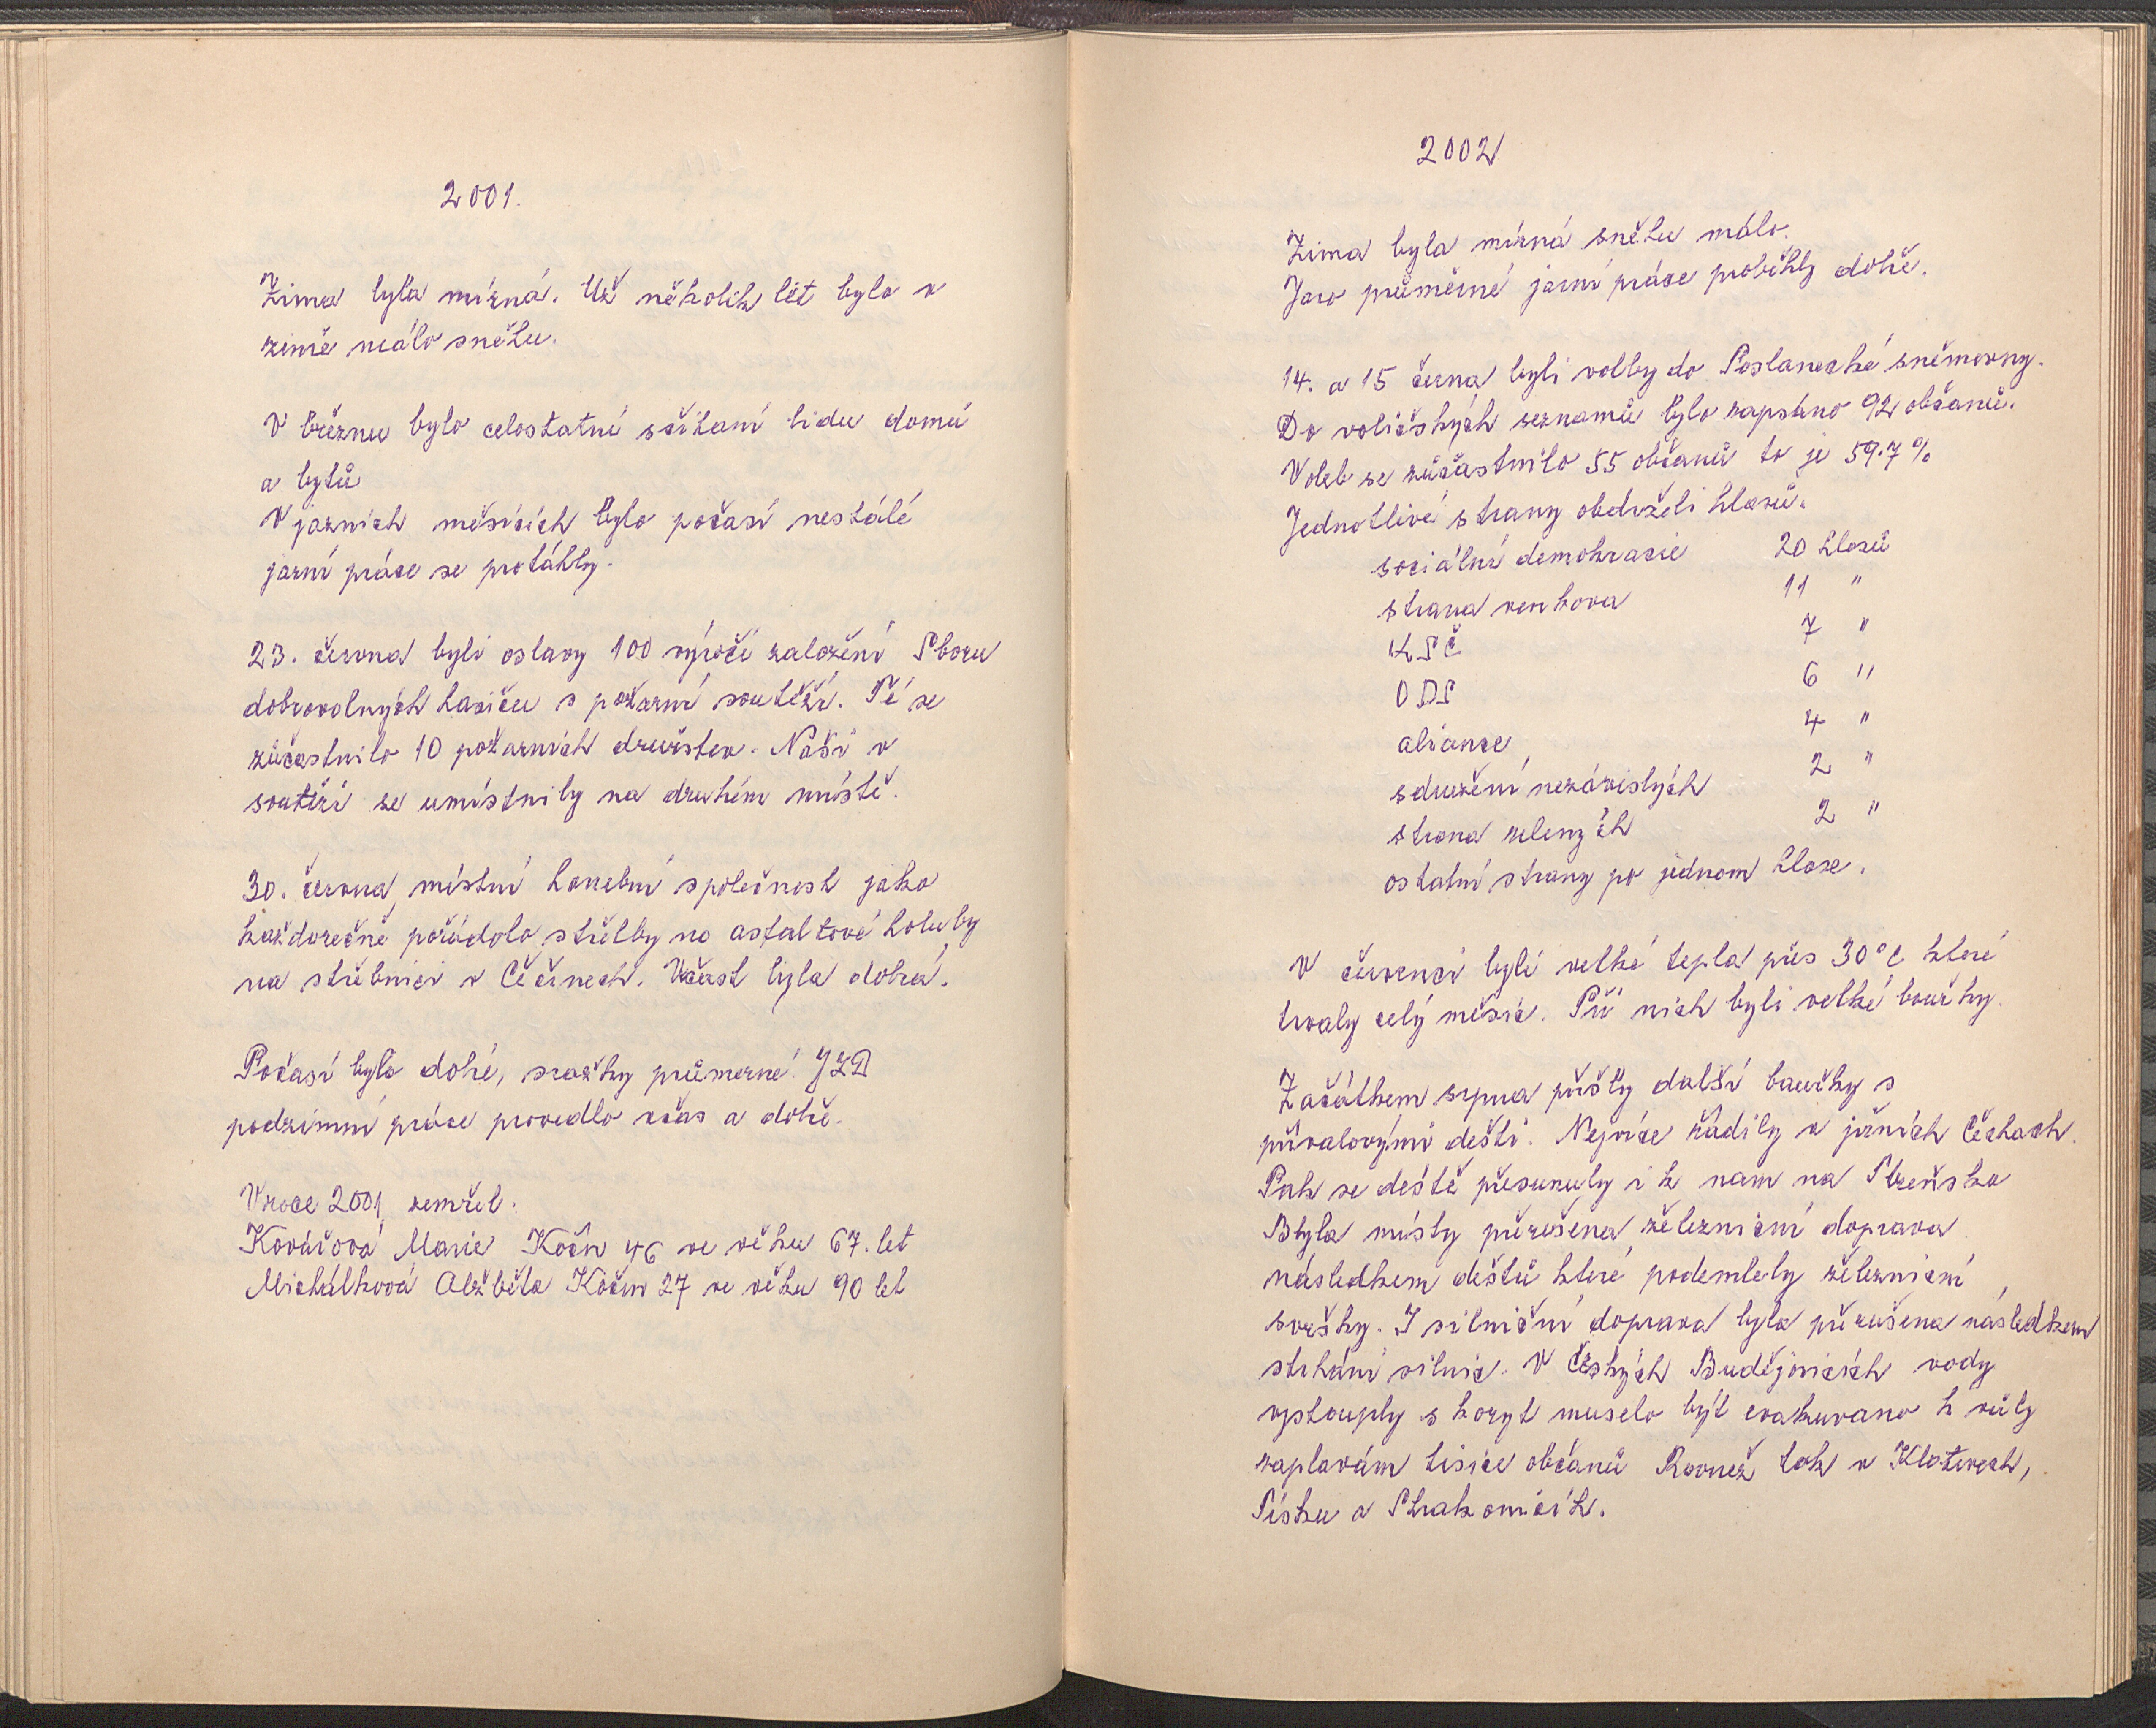 2001.
Zima byla mírná. Už několik lét bylo v
zimě málo sněhu.
V březnu bylo celostatní sčítaní lidu domů
a bytů
V jarních měsících bylo počasí nestálé
jarní práce se protáhly.
23. června byli oslavy 100 výročí založení Sboru
dobrovolných hasičů s požární soutěží. Té se
zůčastnilo 10 požarních družstev. Naši v
soutěži se umístnily na druhém místě.
30. června, místní honební společnost jako
každorečně pořádala střelby na asfaltové holuby
na střelnici v Čečínech. Učast byla dobrá.
Počasí bylo dobré, srážky průmerné. JZD
podzimní práce provedlo včas a dobře.
V roce 2001 zemřel.
Kovářová Marie Kočín 46 ve věku 67. let
Michálková Alžběta Kočín 27 ve věku 90 let
2002
Zima byla mírná sněhu málo.
Jaro průměrné jarní práce proběhly dobře.
14. a 15 června byli volby do Poslanecké sněmovny.
Do voličských seznamů bylo zapsáno 92 občanů.
Voleb se zůčastnilo 55 občanů to je 59.7 %
Jednotlivé strany obdrželi hlasů.
sociální demokracie 20 hlasů
strana venkova 11 "
KSČ 7 "
ODS 6 "
aliance 4 "
sdružení nezávislých 2 "
strana zelených 2 "
ostatní strany po jednom hlase.
V červenci byli velké tepla přes 30°C které
trvaly celý měsíc. Při nich byli velké bouřky.
Začátkem srpna přišly další bouřky s
přívalovými dešti. Nejvíce řádily v jižních Čechach.
Pak se deště přesunuly i k nam na Plzeňsko
Byla místy přerušena železniční doprava
následkem dešťů které podemlely železniční
svršky. I silniční doprava byla přerušena následkem
strhání silnic. V Českých Budějovicích vody
vystouply s koryt muselo být evakuvano k vůly
zaplavám tisíce občanů Rovnež tak v Klatovech,
Písku a Strakonicích.